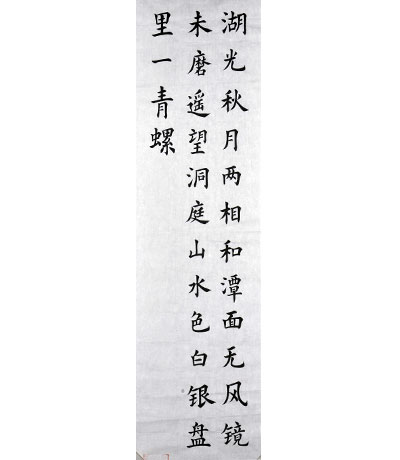 湖光秋月两相和潭面无风镜
未磨遥望洞庭山水色白银盘
里一青螺